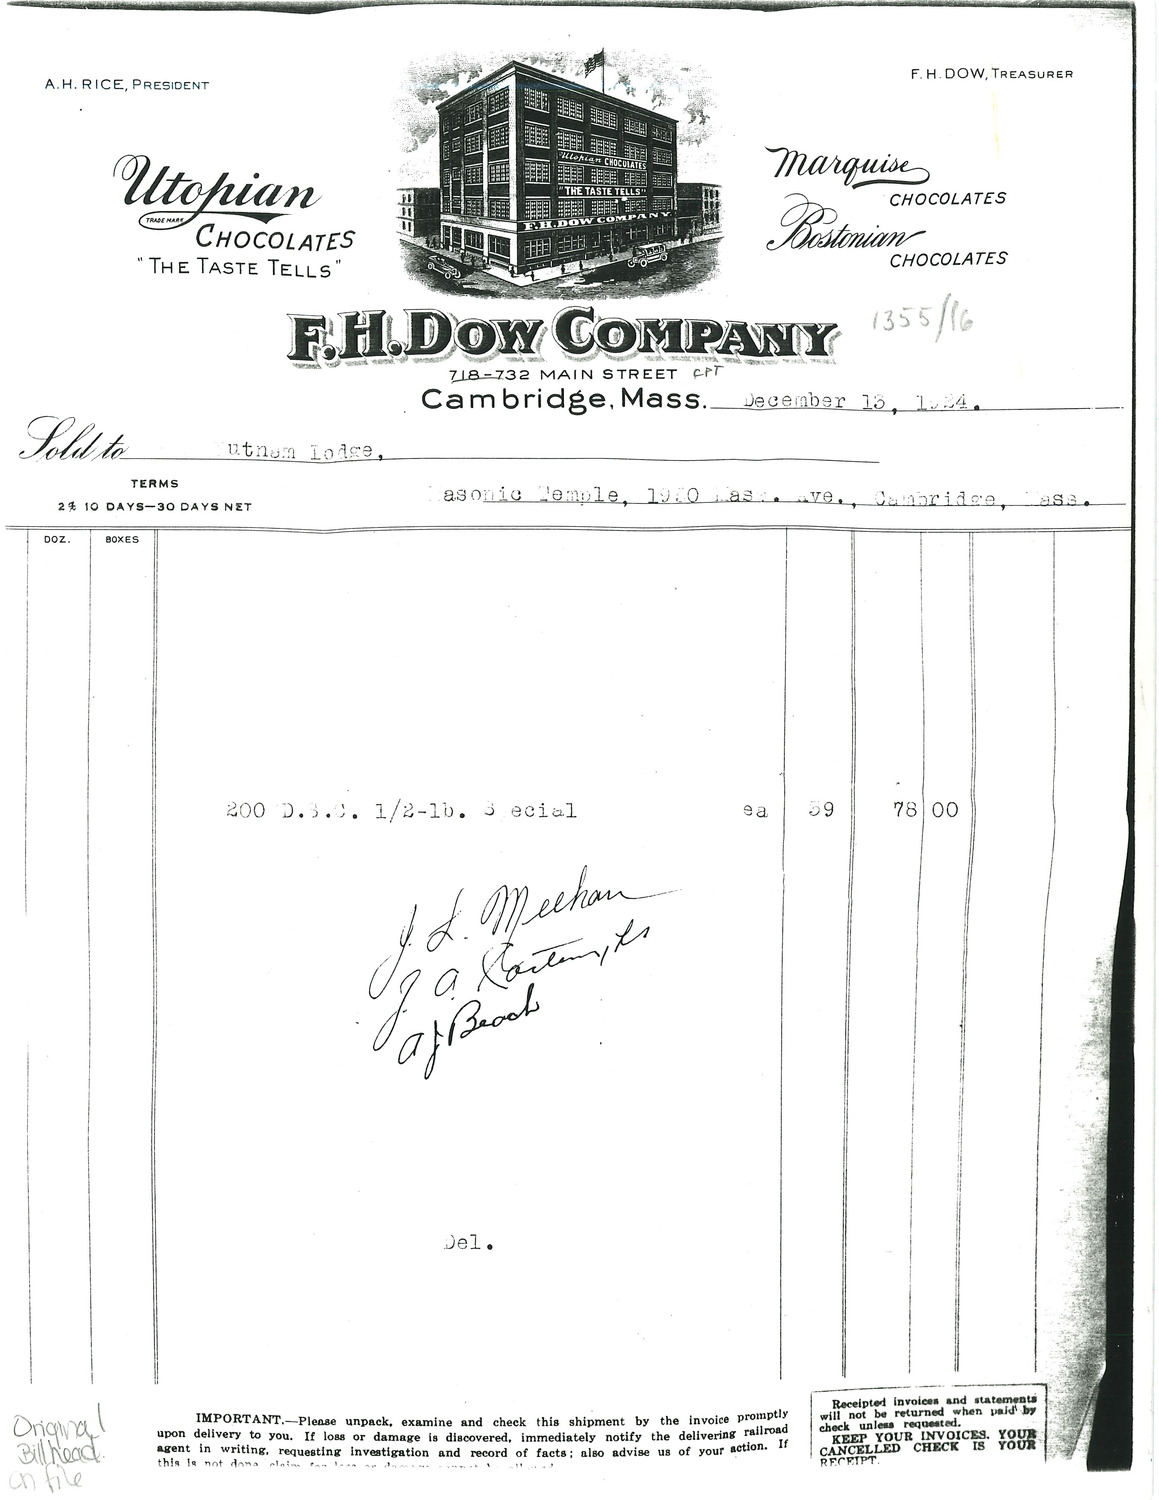 A.H. RICE, PRESIDENT
F. H. DOW, TREASURER
Utopian
TRADE MARK
CHOCOLATES
"THE TASTE TELLS"
Utopian CHOCOLATES
"THE TASTE TELLS"
F.H. DOW COMPANY
Marquise
CHOCOLATES
Bostonian
CHOCOLATES
F.H. DOW COMPANY
1355/16
718-732 MAIN STREET CPT
Cambridge, Mass. December 13, 1924.
Sold to utnam Lodge,
TERMS
2% 10 DAYS—30 DAYS NET
asonic Temple, 1950 Mass. Ave., Cambridge, Mass.
DOZ. BOXES
200 D.S.C. 1/2-lb. S ecial ea 39 78 00
J. L. Meehan
J. A.
A J Beach
Del.
Original
Billhead
on file
IMPORTANT.—Please unpack, examine and check this shipment by the invoice promptly
upon delivery to you. If loss or damage is discovered, immediately notify the delivering railroad
agent in writing, requesting investigation and record of facts; also advise us of your action. If
this is not done, claim for loss or damage
Receipted invoices and statements
will not be returned when paid by
check unless requested.
KEEP YOUR INVOICES. YOUR
CANCELLED CHECK IS YOUR
RECEIPT.